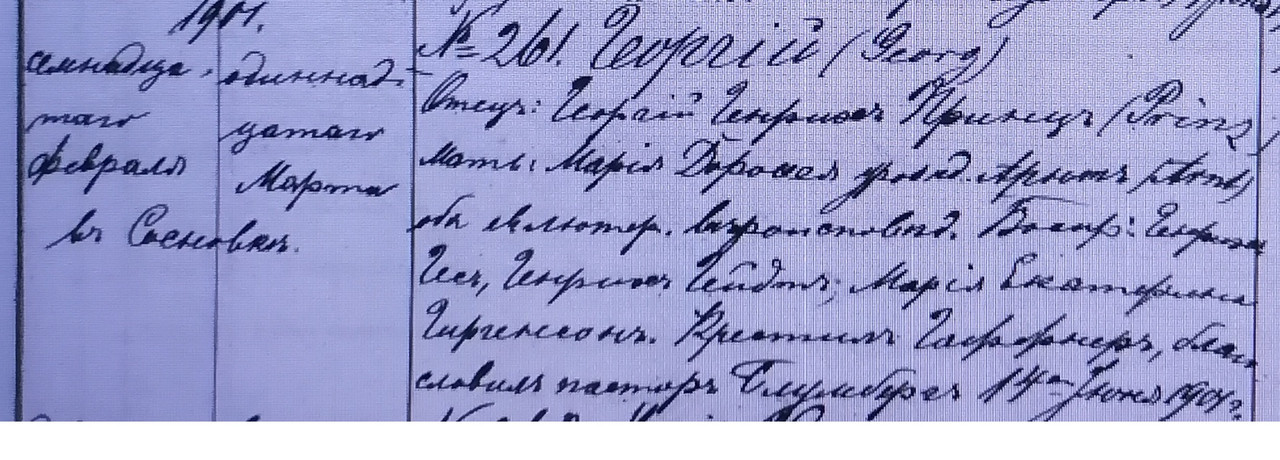 1901.
семнадца-
таго
февраля
въ Сосновкѣ.
одиннад-
цатаго
Марта
№ 261. Георгій (Georg)
Отецъ: Георгій Генрихъ Принцъ (Prinz)
мать: Марія Доротея урожд. Арнтъ (Arnt)
оба ев. лютер. вѣроисповѣд. Воспр: Генрихъ
Гессъ, Генрихъ Гейдтъ; Марія Екатерина
Гиргенсонъ. Крестилъ Гаффнеръ, благо-
словилъ пасторъ Блумбергъ 14го Іюня 1901 г.